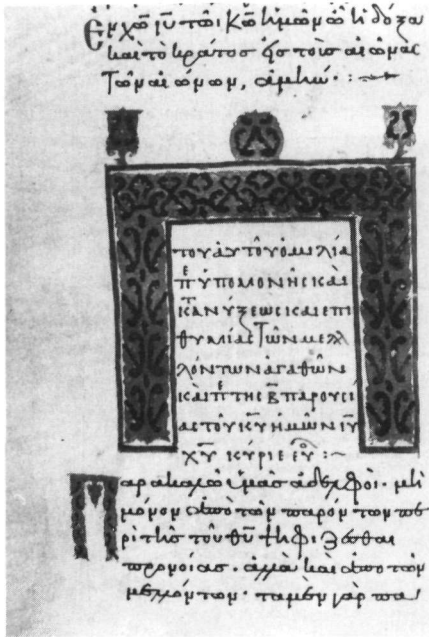 Ἐν χῶ ἰῦ τῶι κῶ ἡμῶν ὧ ἡ δόξα
καὶ τὸ κράτος εἰς τοὺς αἰῶνας
τῶν αἰώνων, ἀμήν.
τοῦ αὐτοῦ ὁμιλία
πε ὑπομονῆς καὶ
κατανύξεως καὶ ἐπι
θυμίας τῶν μελ
λόντων ἀγαθῶν
καὶ πε τῆς β παρουσί
ας τοῦ κυ ἡμῶν ιυ
χυ κύριε ευ :~
Παρακαλῶ ὑμᾶς ἀδελφοί. μὴ
μόνον ἀπὸ τῶν παρόντων πε
ρὶ τῆς τοῦ θυ
προνοίας. ἀλλὰ καὶ ἀπὸ τῶν
μελλόντων. τὰ μὲν γὰρ πα